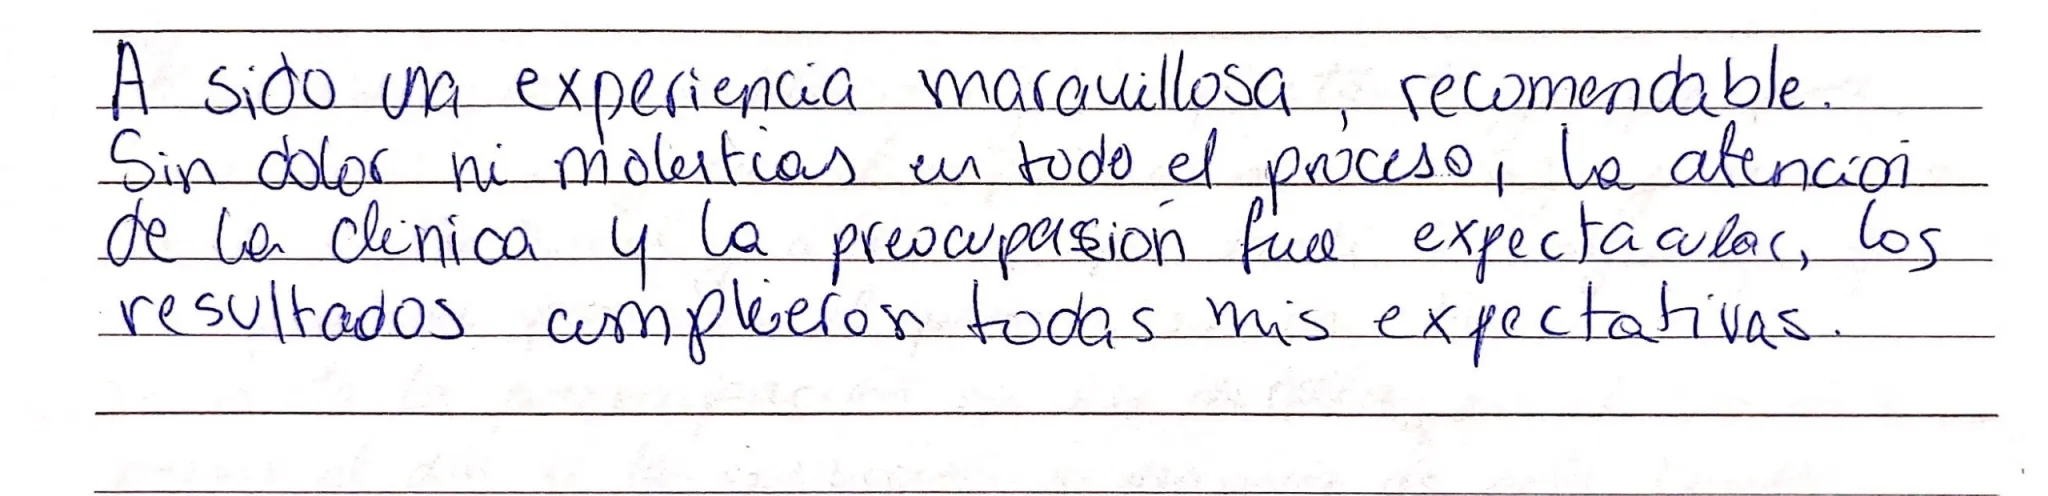 A sido una experiencia maravillosa, recomendable.
Sin dolor ni molestias en todo el proceso, la atención
de la clinica y la preocupassion fue expectacular, los
resultados complieron todas mis expectativas.